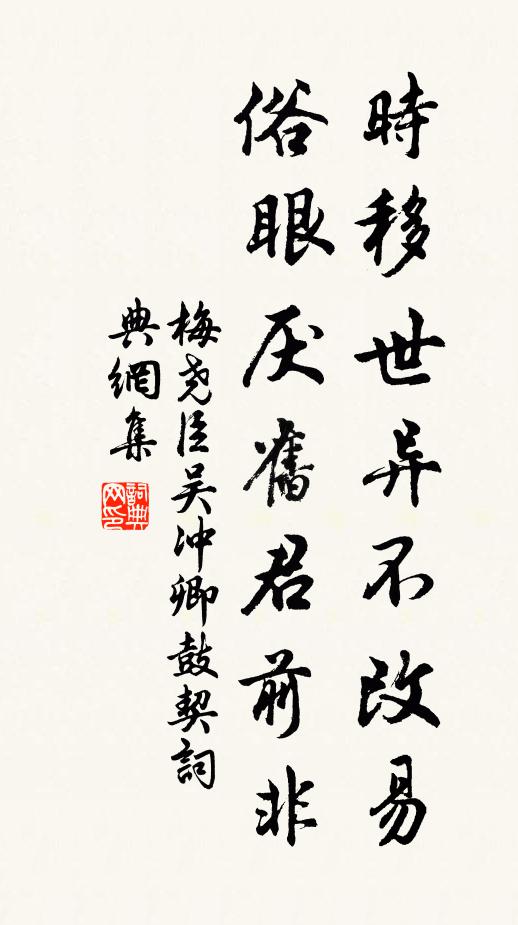 時移世异不改易
俗眼厌舊君前非
梅尧臣吴冲卿鼓契詞
典網集
詞典网印